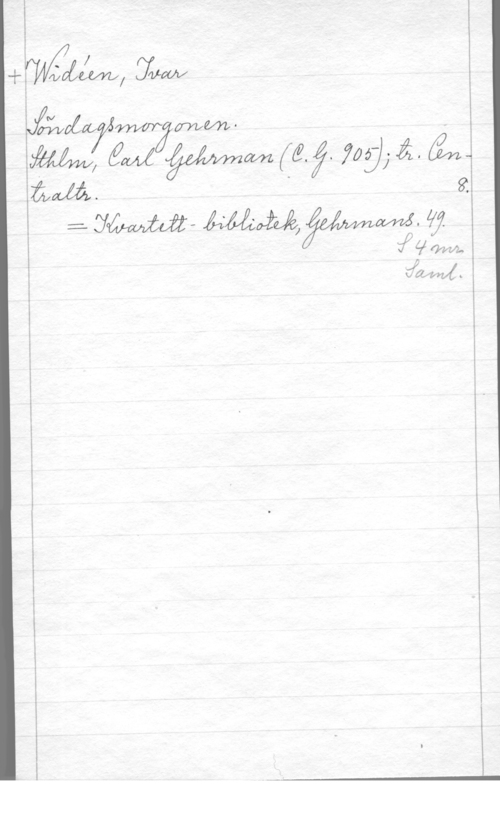 + Widéen, Ivar
Söndagsmorgonen.
Sthlm, Carl Gehrman (C. G. 905); tr. Cen-
traltr. 8.
= Kvartett-bibliotek, Gehrmans. 49.
S 4 mr
Saml.